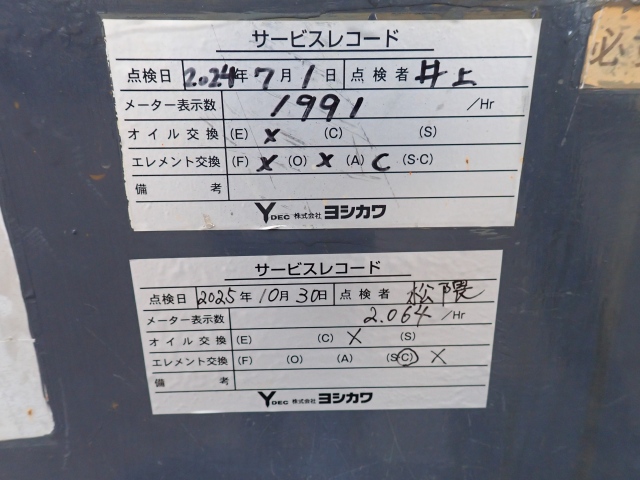 サービスレコード
点検日 2024年7月1日 点検者 井上
メーター表示数 1991 /Hr
オイル交換 (E) X (C) (S)
エレメント交換 (F) X (O) X (A) C (S·C)
備考
YDEC 株式会社 ヨシカワ
必
サービスレコード
点検日 2025年10月30日 点検者 松隈
メーター表示数 2.064 /Hr
オイル交換 (E) (C) X (S)
エレメント交換 (F) (O) (A) (S·C) X
備考
YDEC 株式会社 ヨシカワ